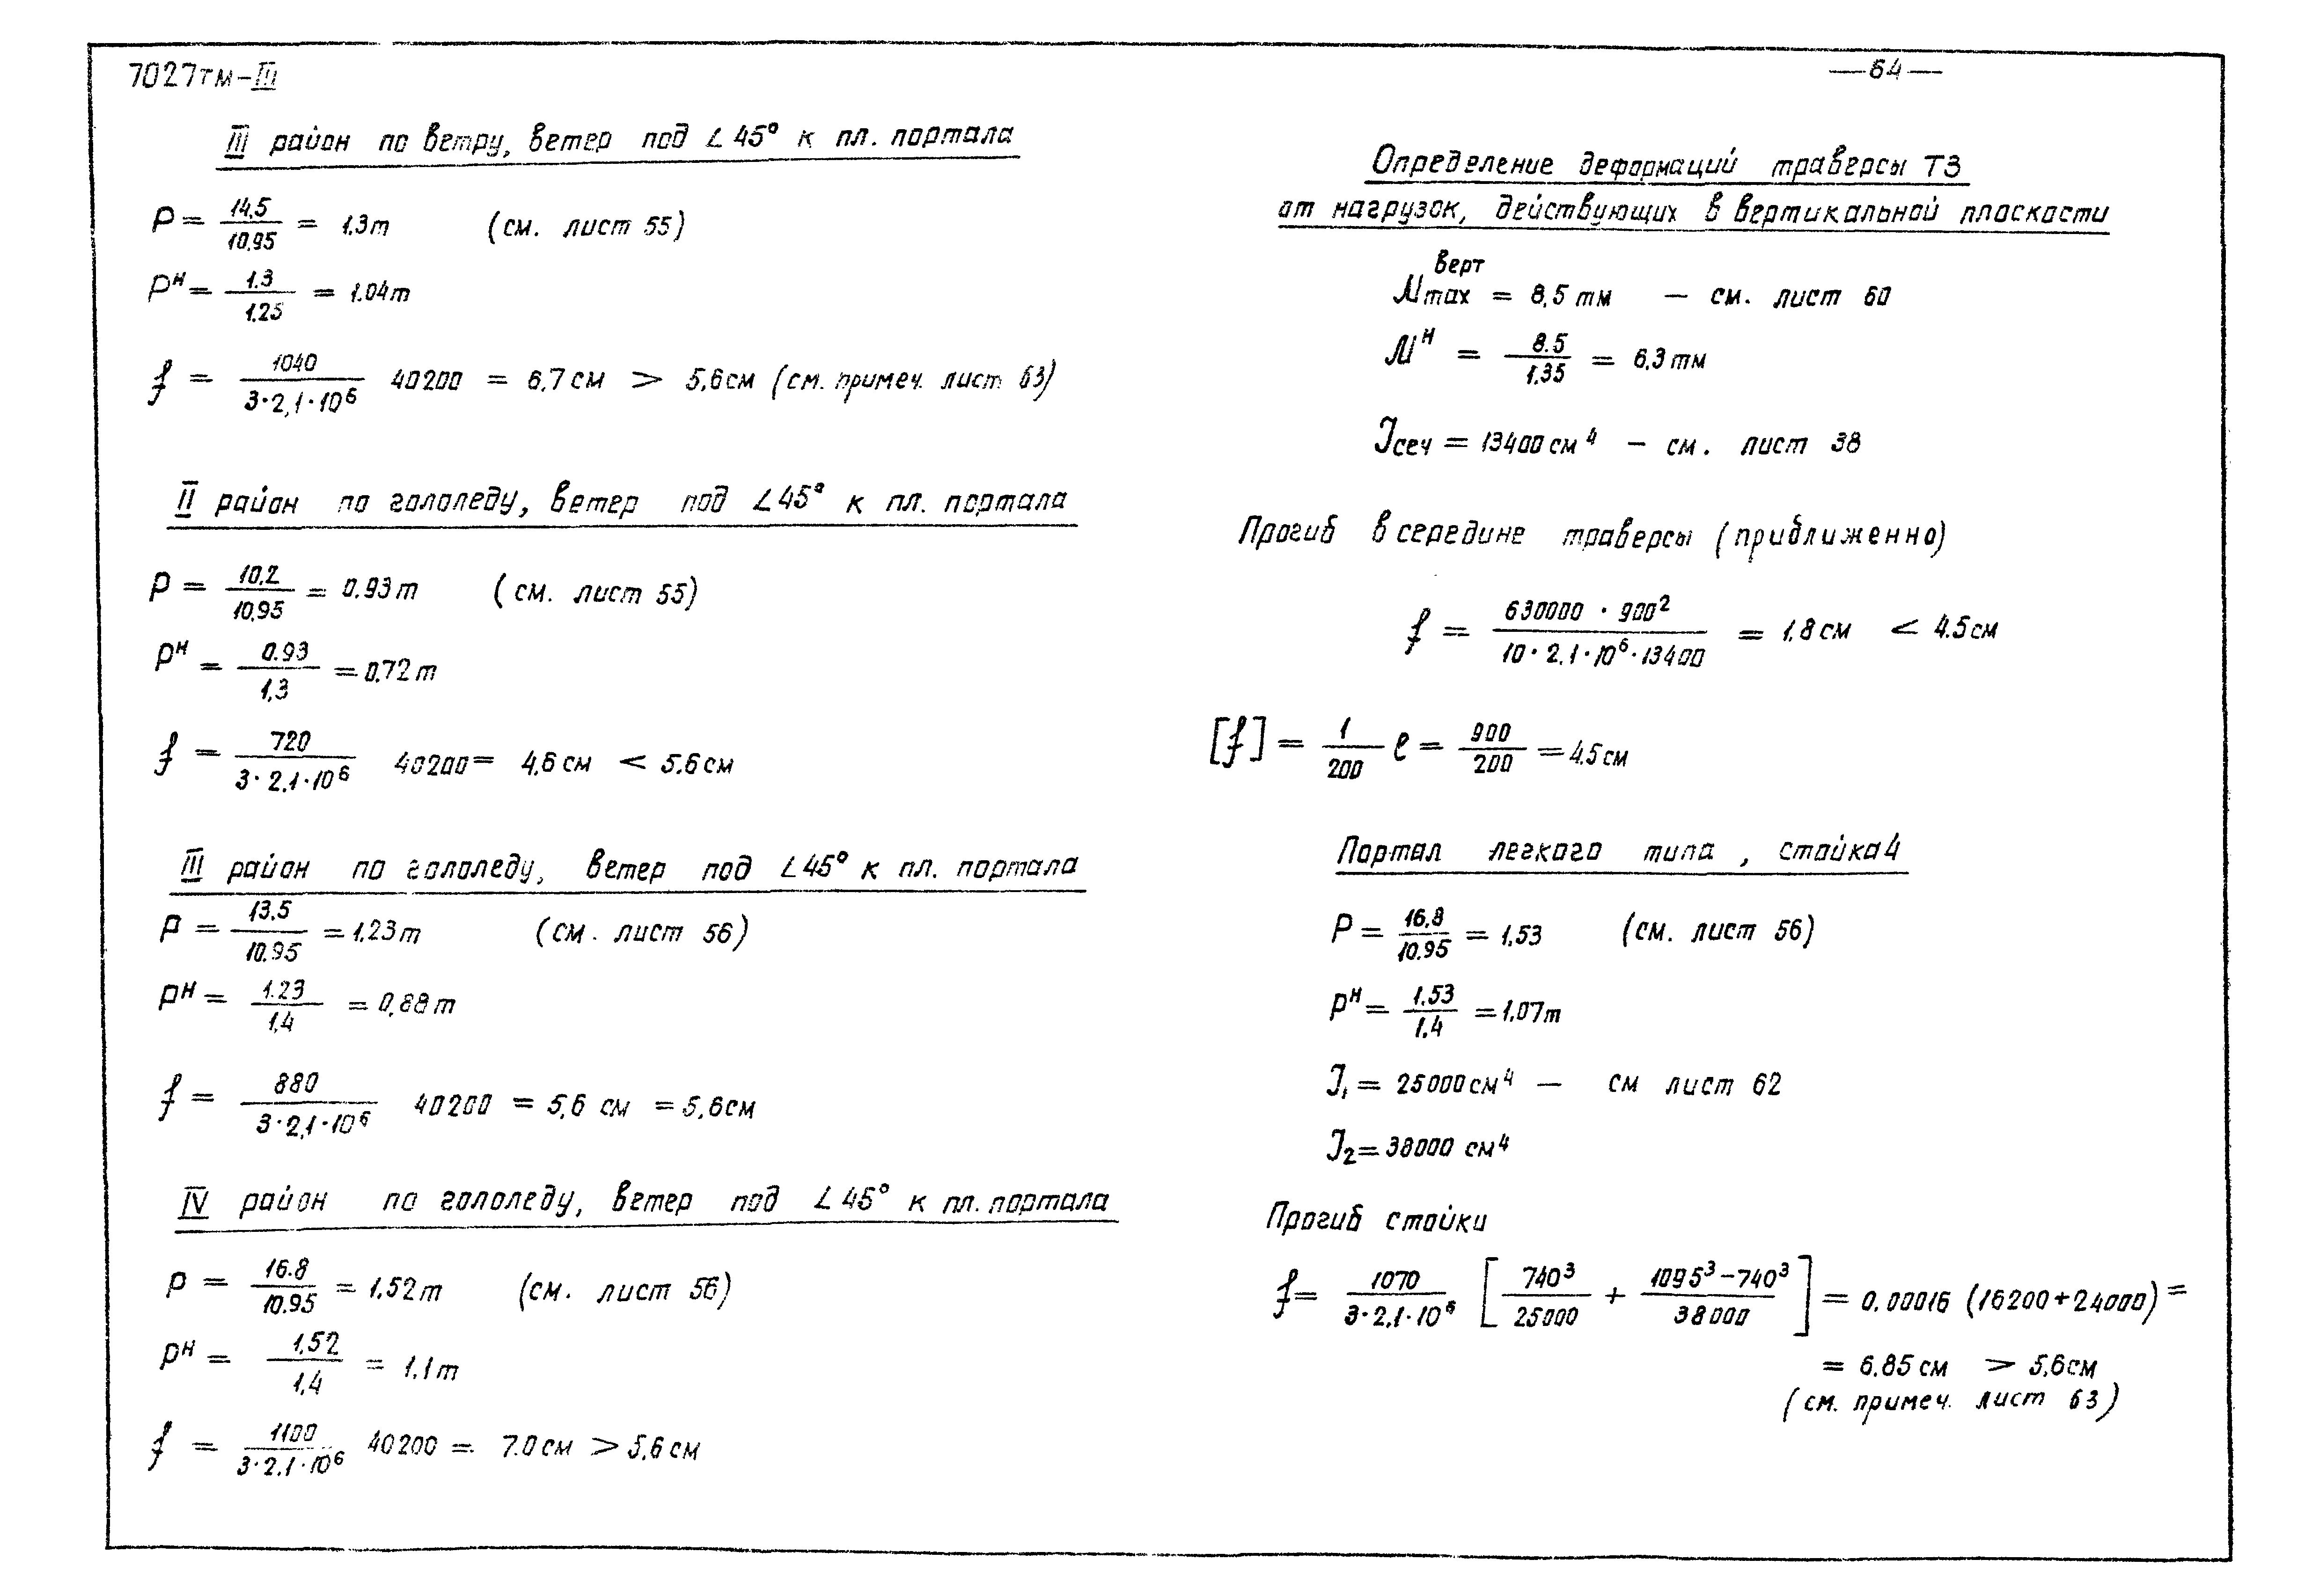 7027тм-III
—64—
III район по ветру, ветер под ∠45° к пл. портала
P = 14,5 / 10,95 = 1,3т (см. лист 55)
Pᴴ = 1.3 / 1.25 = 1.04т
f = 1040 / 3·2,1·10⁶ 40200 = 6,7см > 5,6см (см. примеч. лист 63)
II район по гололеду, ветер под ∠45° к пл. портала
P = 10,2 / 10,95 = 0.93т (см. лист 55)
Pᴴ = 0.93 / 1,3 = 0,72т
f = 720 / 3·2,1·10⁶ 40200 = 4,6см < 5.6см
III район по гололеду, ветер под ∠45° к пл. портала
P = 13,5 / 10.95 = 1,23т (см. лист 56)
Pᴴ = 1.23 / 1,4 = 0,88т
f = 880 / 3·2,1·10⁶ 40200 = 5,6 см = 5,6см
IV район по гололеду, ветер под ∠45° к пл. портала
P = 16.8 / 10.95 = 1,52т (см. лист 56)
Pᴴ = 1,52 / 1,4 = 1,1т
f = 1100 / 3·2.1·10⁶ 40200 = 7.0см > 5,6см
Определение деформаций траверсы Т3
от нагрузок, действующих в вертикальной плоскости
Mmax верт = 8,5тм — см. лист 60
Mᴴ = 8.5 / 1,35 = 6,3тм
Jсеч = 13400см⁴ — см. лист 38
Прогиб в середине траверсы (приближенно)
f = 630000 · 900² / 10·2,1·10⁶·13400 = 1,8см < 4.5см
[f] = 1 / 200 ℓ = 900 / 200 = 4,5см
Портал легкого типа, стойка 4
P = 16,8 / 10.95 = 1,53 (см. лист 56)
Pᴴ = 1,53 / 1.4 = 1,07т
J₁ = 25000см⁴ — см лист 62
J₂ = 38000 см⁴
Прогиб стойки
f = 1070 / 3·2,1·10⁶ [ 740³ / 25000 + 1095³−740³ / 38000 ] = 0,00016 (16200+24000) =
= 6.85см > 5,6см
(см. примеч. лист 63)